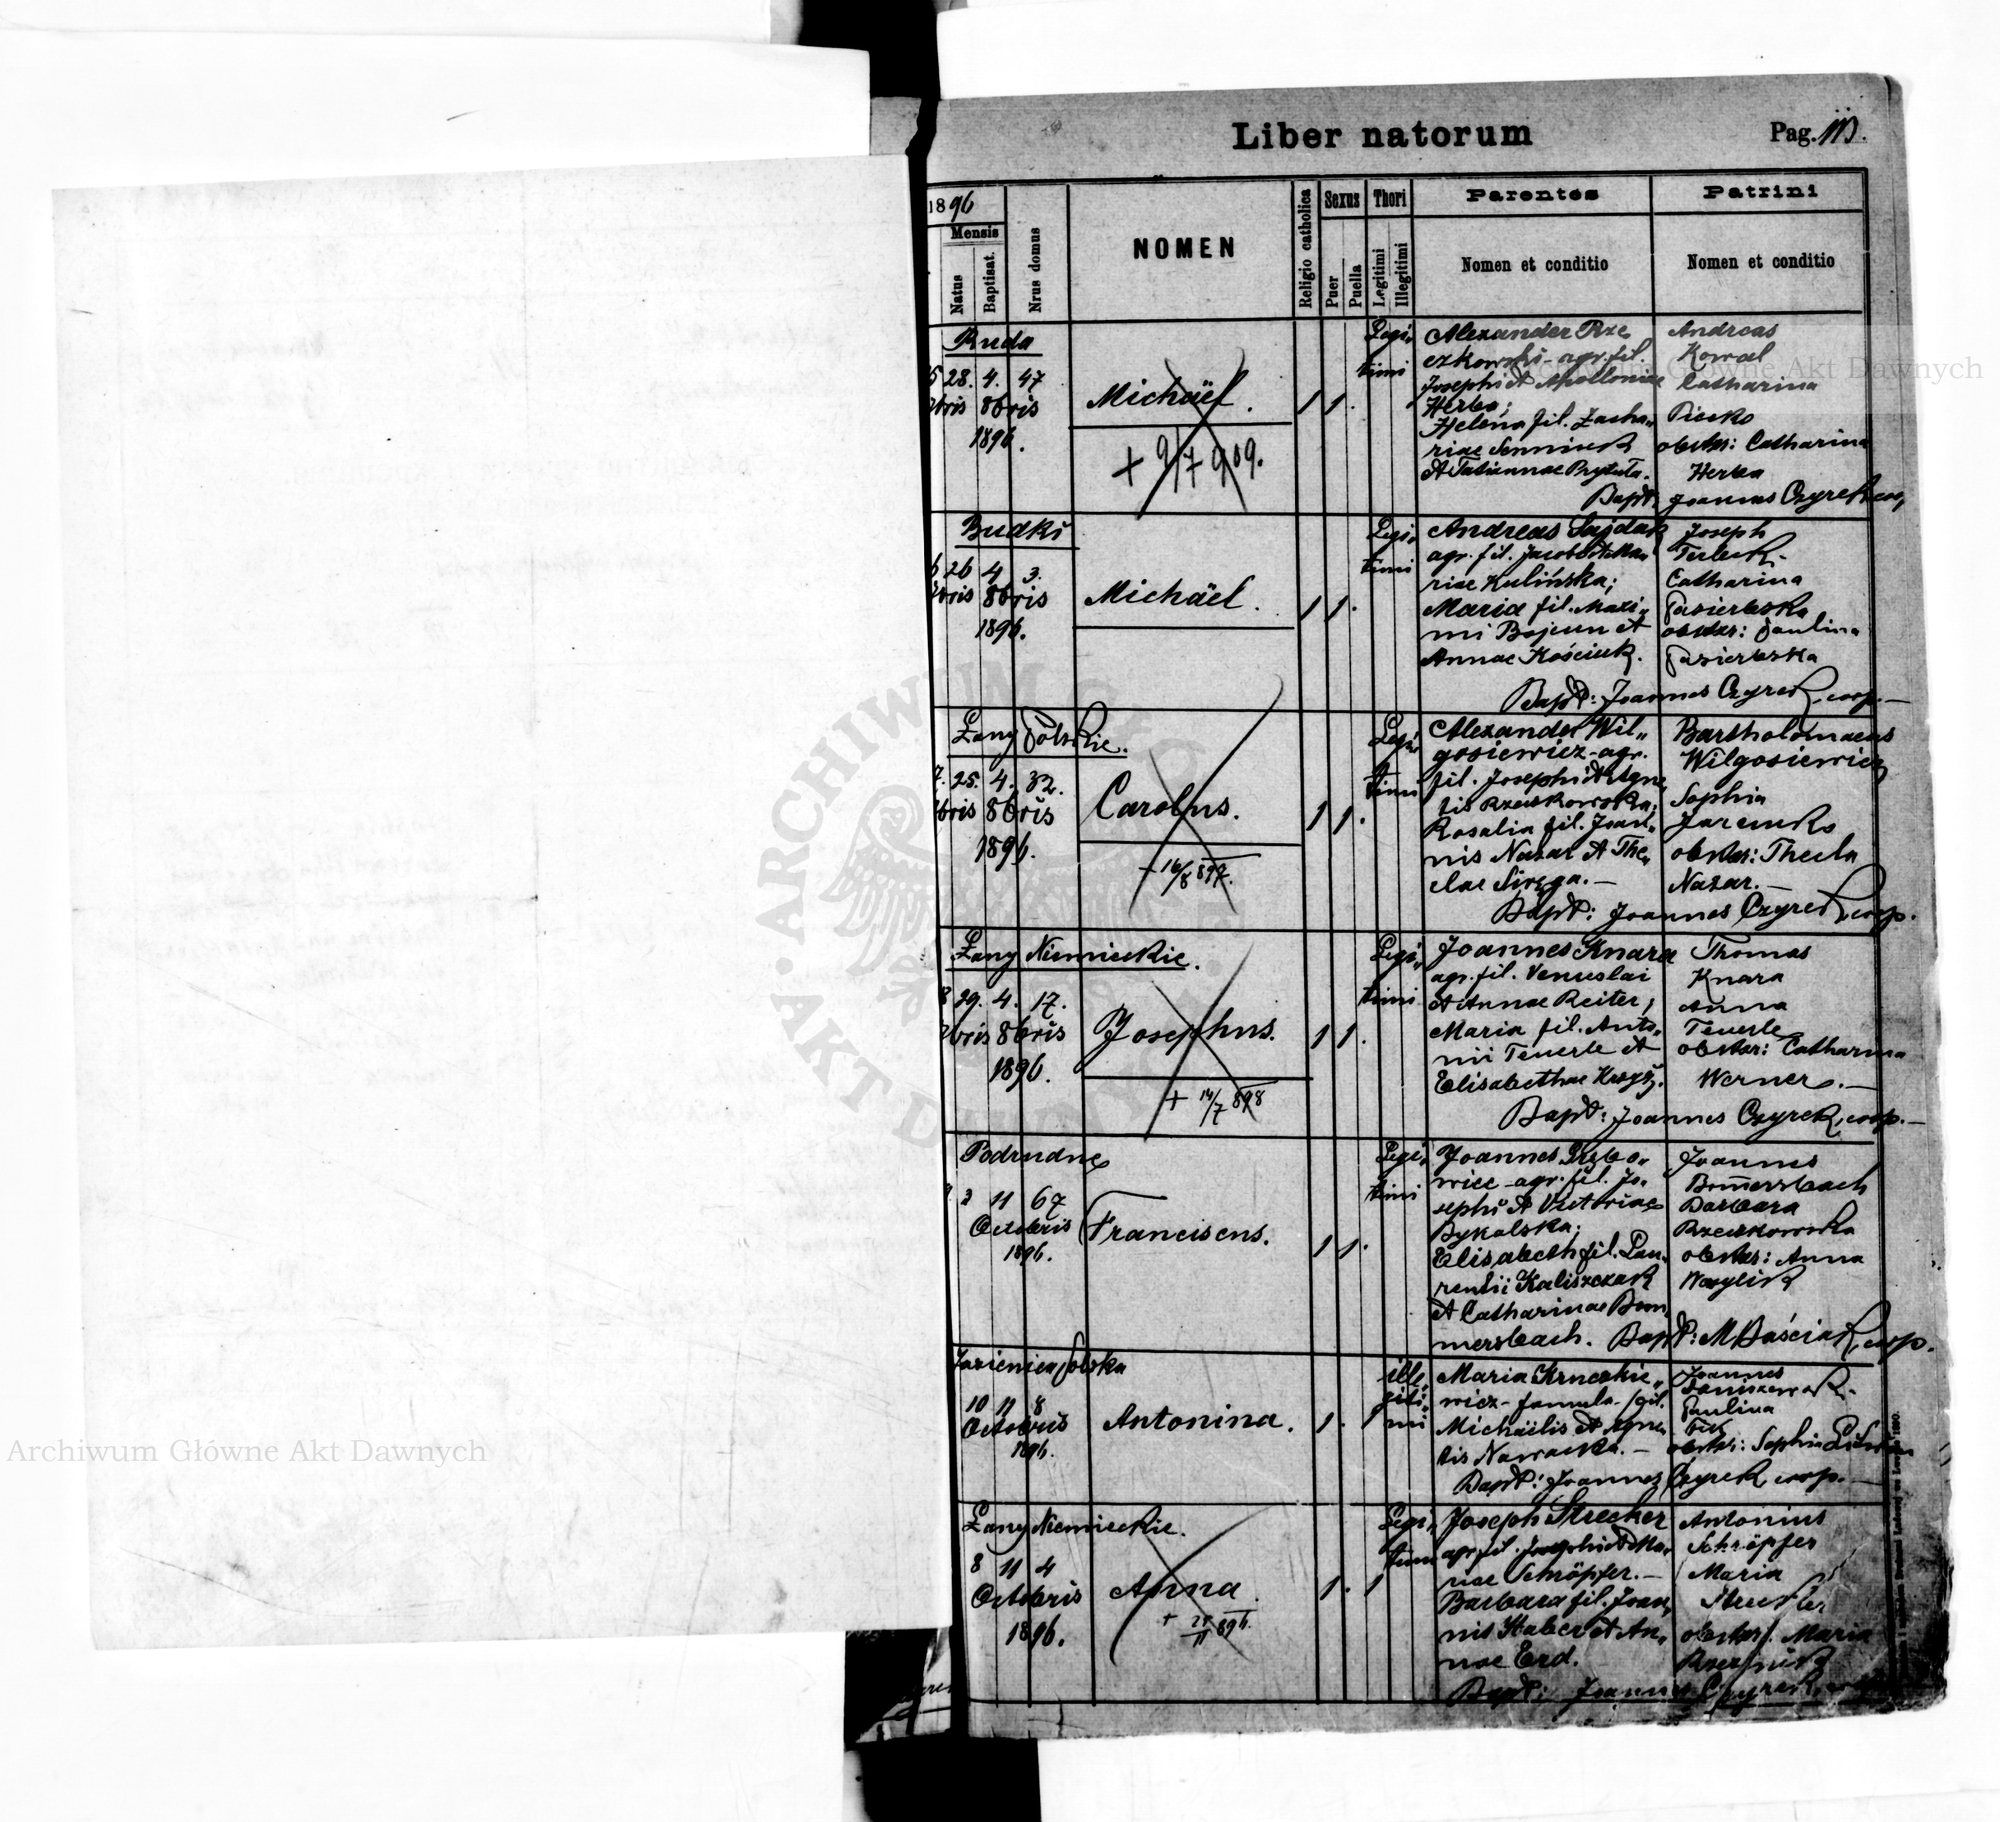 Liber natorum
Pag.
1896
Mensis
Natus
Baptisat.
Nrus domus
NOMEN
Religio catholica
Sexus
Puer
Puella
Thori
Legitimi
Illegitimi
Parentes
Nomen et conditio
Patrini
Nomen et conditio
Ruda
28. 4. 47
8bris
1896.
Michäel.
+ 9/7 909.
1 1.
Legi„
timi
Alexander Rze
czkowski - agr. fil.
Josephi et Apolloniae
Herba;
Helena fil. Zacha„
riae
et Tatiannae
Andreas
Kowal
Catharina
obstetr: Catharina
Herba
Bapt: Joannes Czyrek coop.
Budki
26 4 3.
8bris
1896.
Michäel.
1 1.
Legi„
timi
Andreas Sajdak
agr. fil. Jacobi et Ma„
riae Kulińska;
Maria fil. Maxi„
mi Bojeun et
Annae Kościuk.
Joseph
Terleck
Catharina
Pasierbska
obstetr: Paulina
Pasierbska
Bapt: Joannes Czyrek, coop.—
Łany Polskie.
7. 25. 4. 32.
8bris
1896.
Carolus.
+ 16/8 897.
1 1.
Legi„
timi
Alexander Wil„
gosiewicz - agr.
fil. Josephi et Agne
tis Rzeczkowska;
Rosalia fil. Joan„
nis Nazar et The„
clae Siręga. —
Bartholomaeus
Wilgosiewicz
Sophia
Jaremko
obstetr: Thecla
Nazar. —
Bapt: Joannes Czyrek, coop.
Łany Niemieckie.
8 29. 4. 17.
8bris
1896.
Josephus.
+ 14/7 898
1 1.
Legi„
timi
Joannes Knara
agr. fil. Venceslai
et Annae Reiter;
Maria fil. Anto„
nii Teuerle et
Elisabethae
Thomas
Knara
Anna
Teuerle
obstetr: Catharina
Werner. —
Bapt: Joannes Czyrek, coop. —
Podrudne
3 11 67
Octobris
1896.
Franciscus.
1 1.
Legi„
timi
Joannes
wicz - agr. fil. Jo„
sephi et Victoriae
Bykalska;
Elisabeth fil. Lau„
rentii Kaliszczak
et Catharinae Bom
mersbach.
Joannes
Bom̄ersbach
Barbara
Rzeczkowska
obstetr: Anna
Wasylik
Bapt: M Baściak, coop.
Jazienica Polska
10 11 8
Octobris
1896.
Antonina.
1. 1
ille„
giti„
mi
Maria Kruczkie„
wicz - famula - fil.
Michäelis et Agne
tis Nawacka. —
Joannes
Paulina
obstetr: Sophia
Bapt: Joannes Czyrek coop. —
Łany Niemieckie.
8 11 4
Octobris
1896.
Anna.
+ 896.
1. 1
Legi„
timi
Joseph Strecker
agr. fil. Josephi et Ma„
nae Schröpfer. —
Barbara fil. Joan„
nis Haber et An„
nae Erd.
Antonius
Schröpfer
Maria
obstetr. Maria
Bapt: Joannes Czyrek,
Archiwum Główne Akt Dawnych
Archiwum Główne Akt Dawnych